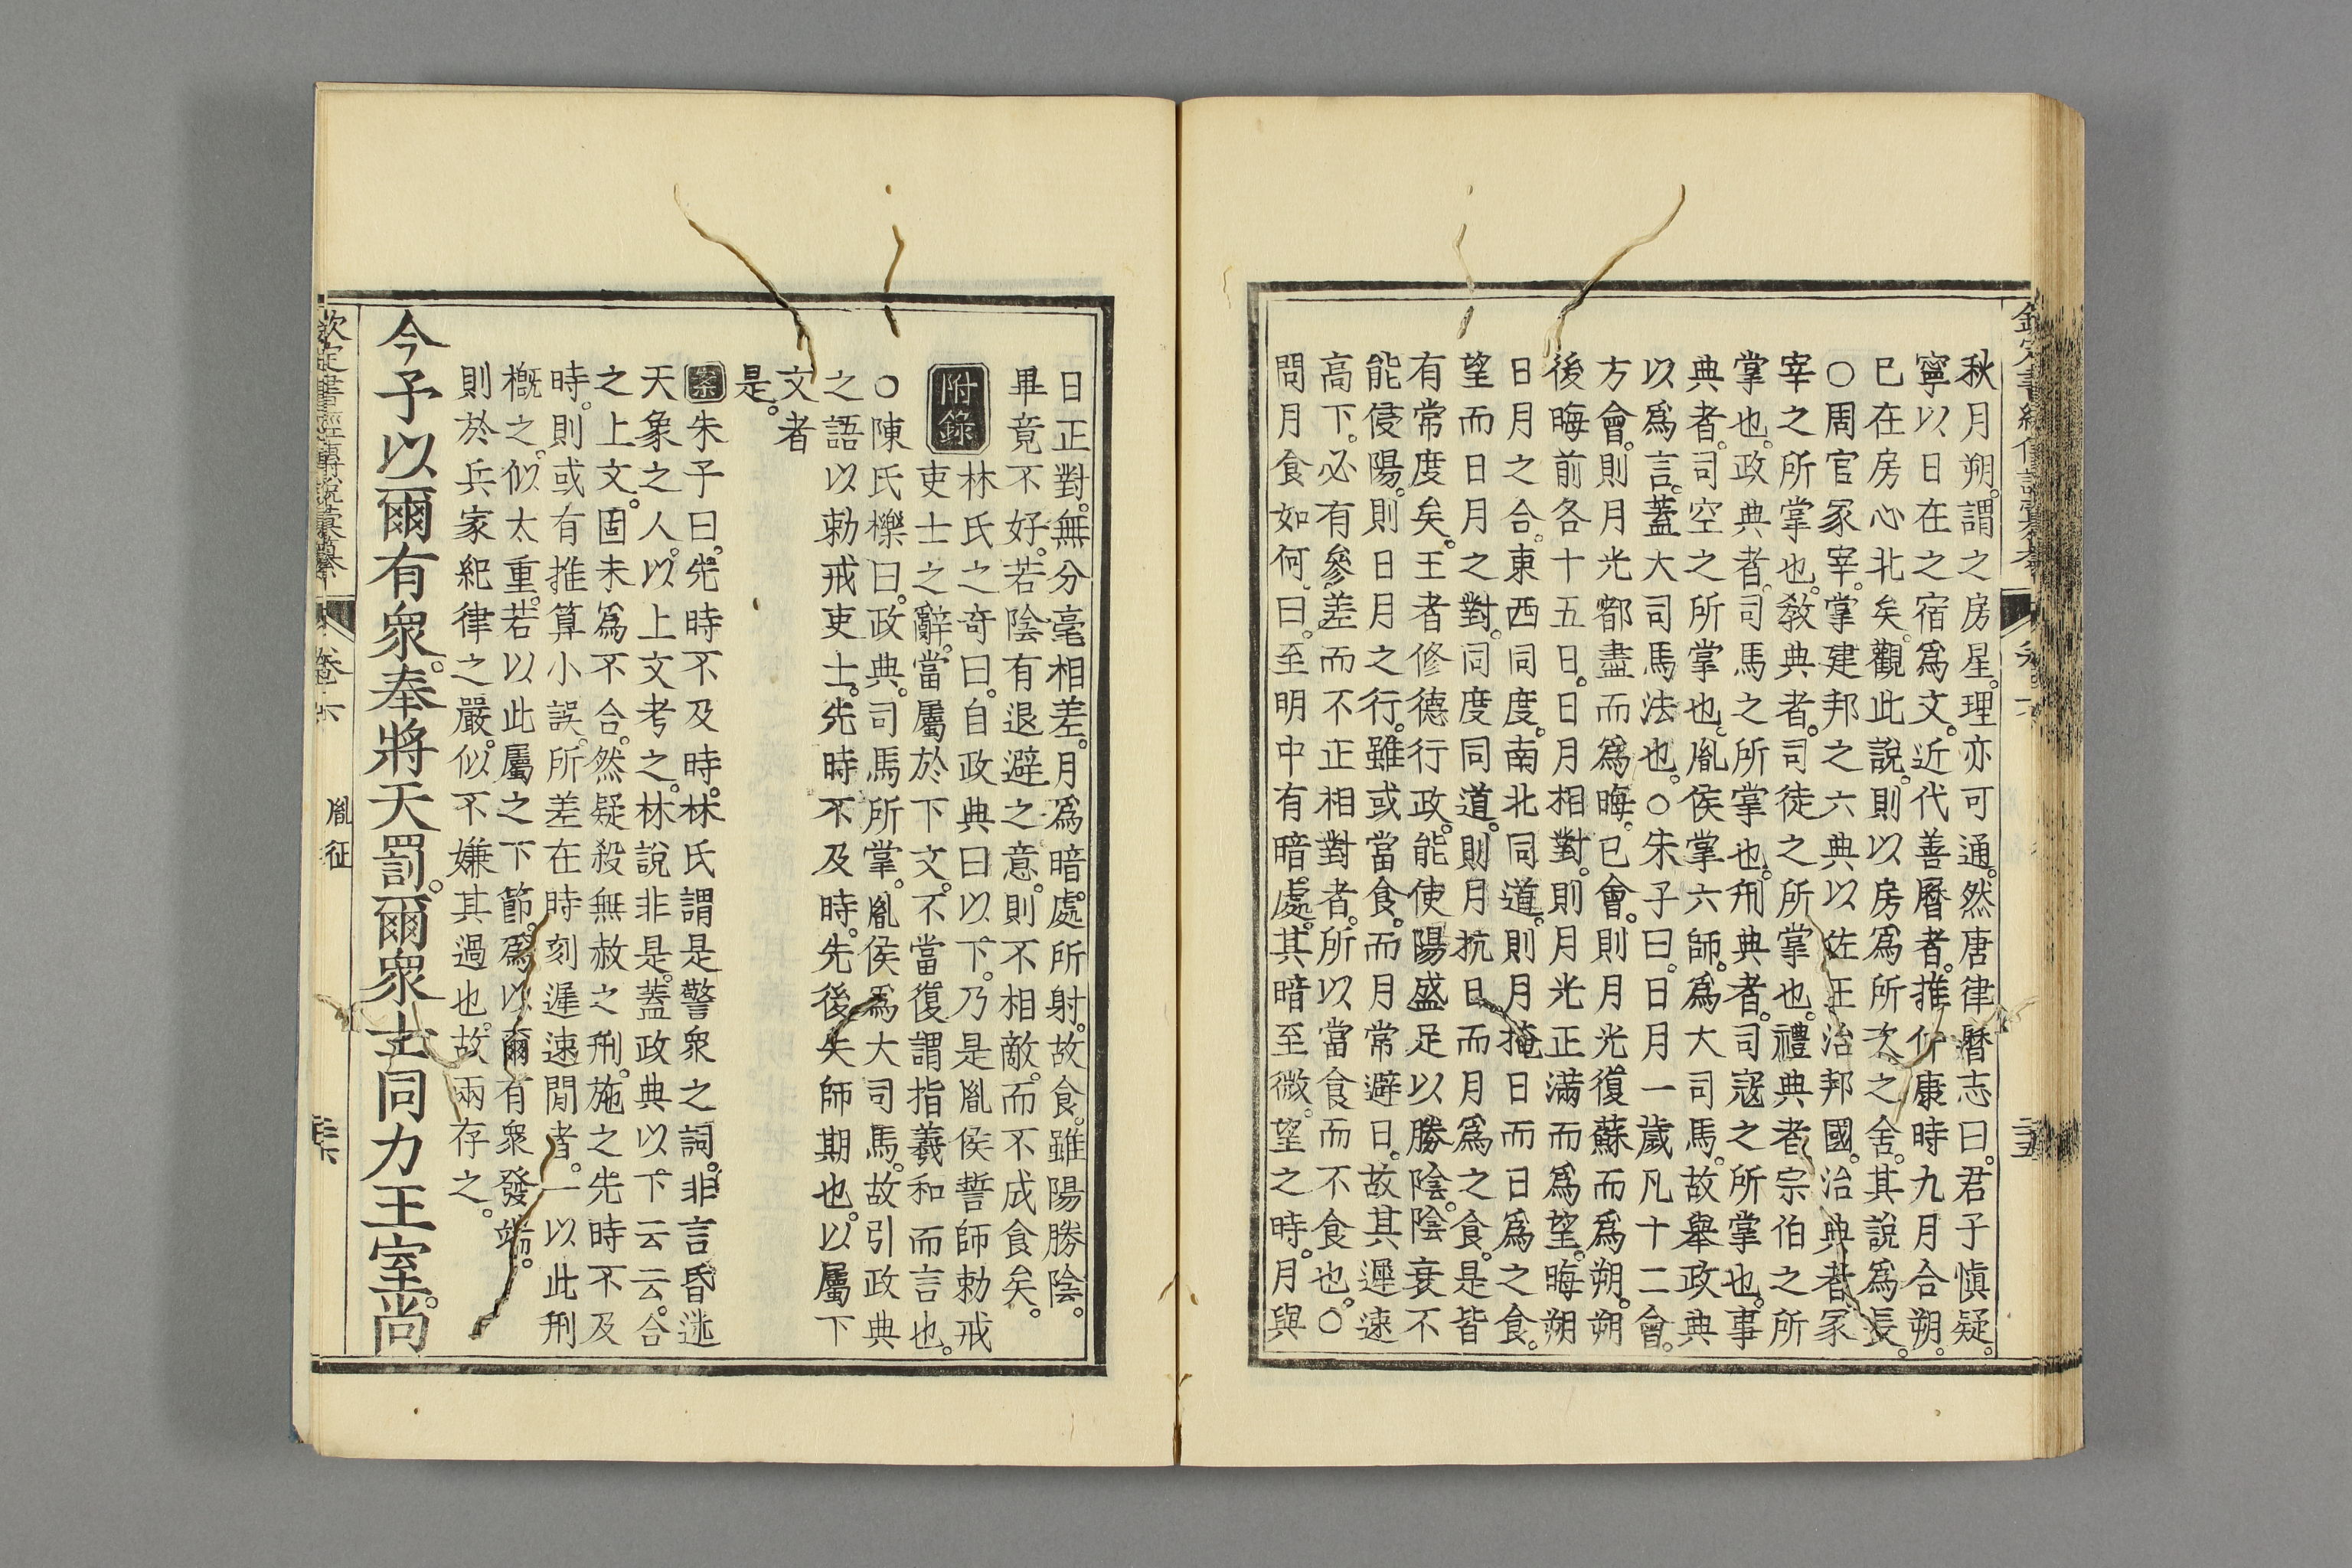 秋月朔。謂之房星。理亦可通。然唐律曆志曰。君子愼疑。
寧以日在之宿爲文。近代善曆者。推仲康時九月合朔。
已在房心北矣。觀此說。則以房爲所次之舍。其說爲長。
○周官冢宰。掌建邦之六典以佐王治邦國。治典者。冢
宰之所掌也。敎典者。司徒之所掌也。禮典者。宗伯之所
掌也。政典者。司馬之所掌也。刑典者。司寇之所掌也。事
典者。司空之所掌也。胤侯掌六師。爲大司馬。故舉政典
以爲言。蓋大司馬法也。○朱子曰。日月一歲凡十二會。
方會。則月光都盡而爲晦。已會。則月光復蘇而爲朔。朔
後晦前各十五日。日月相對。則月光正滿而爲望。晦朔
日月之合。東西同度。南北同道。則月掩日而日爲之食。
望而日月之對。同度同道。則月抗日而月爲之食。是皆
有常度矣。王者修德行政。能使陽盛足以勝陰。陰衰不
能侵陽。則日月之行。雖或當食。而月常避日。故其遲速
高下。必有參差而不正相對者。所以當食而不食也。○
問月食如何。曰。至明中有暗處。其暗至微。望之時。月與
日正對。無分毫相差。月爲暗處所射。故食。雖陽勝陰。
畢竟不好。若陰有退避之意。則不相敵。而不成食矣。
附錄
林氏之奇曰。自政典曰以下。乃是胤侯誓師勅戒
吏士之辭。當屬於下文。不當復謂指羲和而言也。
○陳氏櫟曰。政典。司馬所掌。胤侯爲大司馬。故引政典
之語以勅戒吏士。先時不及時。先後失師期也。以屬下
文者
是。
案朱子曰。先時不及時。林氏謂是警衆之詞。非言昏迷
天象之人。以上文考之。林說非是。蓋政典以下云云。合
之上文。固未爲不合。然疑殺無赦之刑。施之先時不及
時。則或有推算小誤。所差在時刻遲速閒者。一以此刑
槪之。似太重。若以此屬之下節。爲以爾有衆發端。
則於兵家紀律之嚴。似不嫌其過也。故兩存之。
今予以爾有衆。奉將天罰。爾衆士同力王室。尚
欽定書經傳說彙纂
卷六
胤征